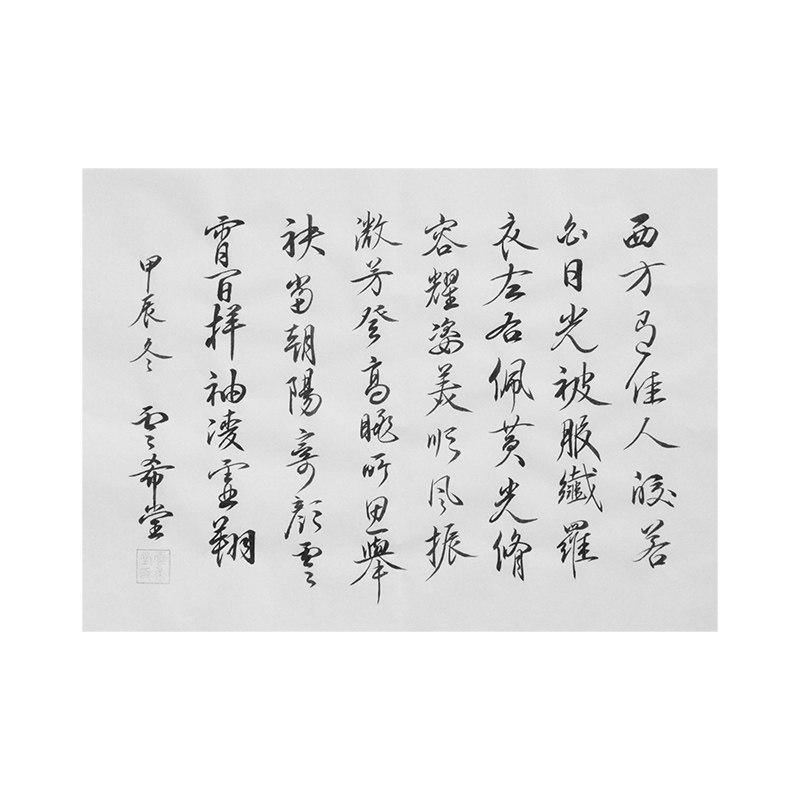 西方有佳人皎若
白日光被服纖羅
衣左右佩黃光脩
容耀姿美順風振
微芳登高眺所思舉
袂當朝陽寄顏雲
霄間揮袖凌虛翔
甲辰冬 雲希堂